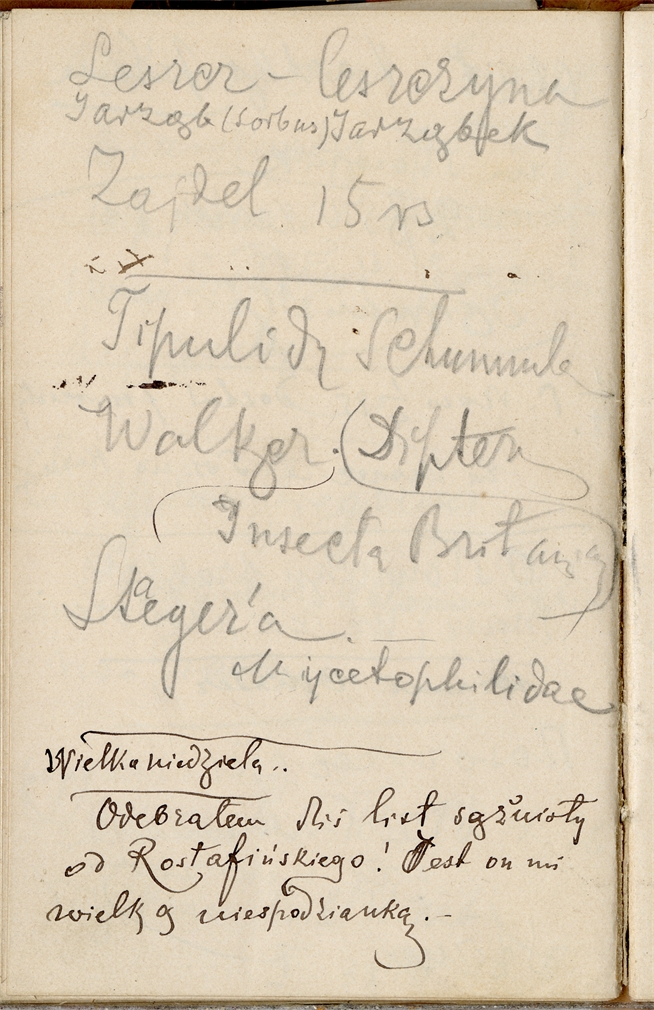 Leszcz – leszczyna
Jarząb (Sorbus) Jarząbek
Zajdel 15 rs
Tipulidy Schummla
Walker. (Dipter
Insecta Britanica)
Staeger'a.
Mycetophilidae
Wielka niedziela..
Odebrałem dziś list sążnisty
od Rostafińskiego! Jest on mi
wielką niespodzianką. –